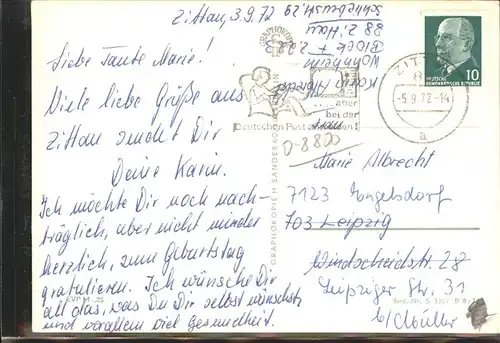 Zittau, 3.9.72
Liebe Tante Marie!
Viele liebe Grüße aus
Zittau sendet Dir
Deine Karin.
Ich möchte Dir noch nach-
träglich, aber nicht minder
herzlich, zum Geburtstag
gratulieren. Ich wünsche Dir
all das, was Du Dir selbst wünschst
und vorallem viel Gesundheit.
Karin Albrecht
Wohnheim
Block
88 Zittau
Schliebenstr. 29
GRAPHOKOPIE
... aber
bei der
Deutschen Post anmelden!
0-8800
DEUTSCHE
DEMOKRATISCHE REPUBLIK
10
ZITTAU
-5.9.72-14
a
Marie Albrecht
7123 Engelsdorf
703 Leipzig
Windscheidstr. 28
Leipziger Str. 31
b/Müller
EVP M -,25
GRAPHOKOPIE H. SANDER KG BERLIN